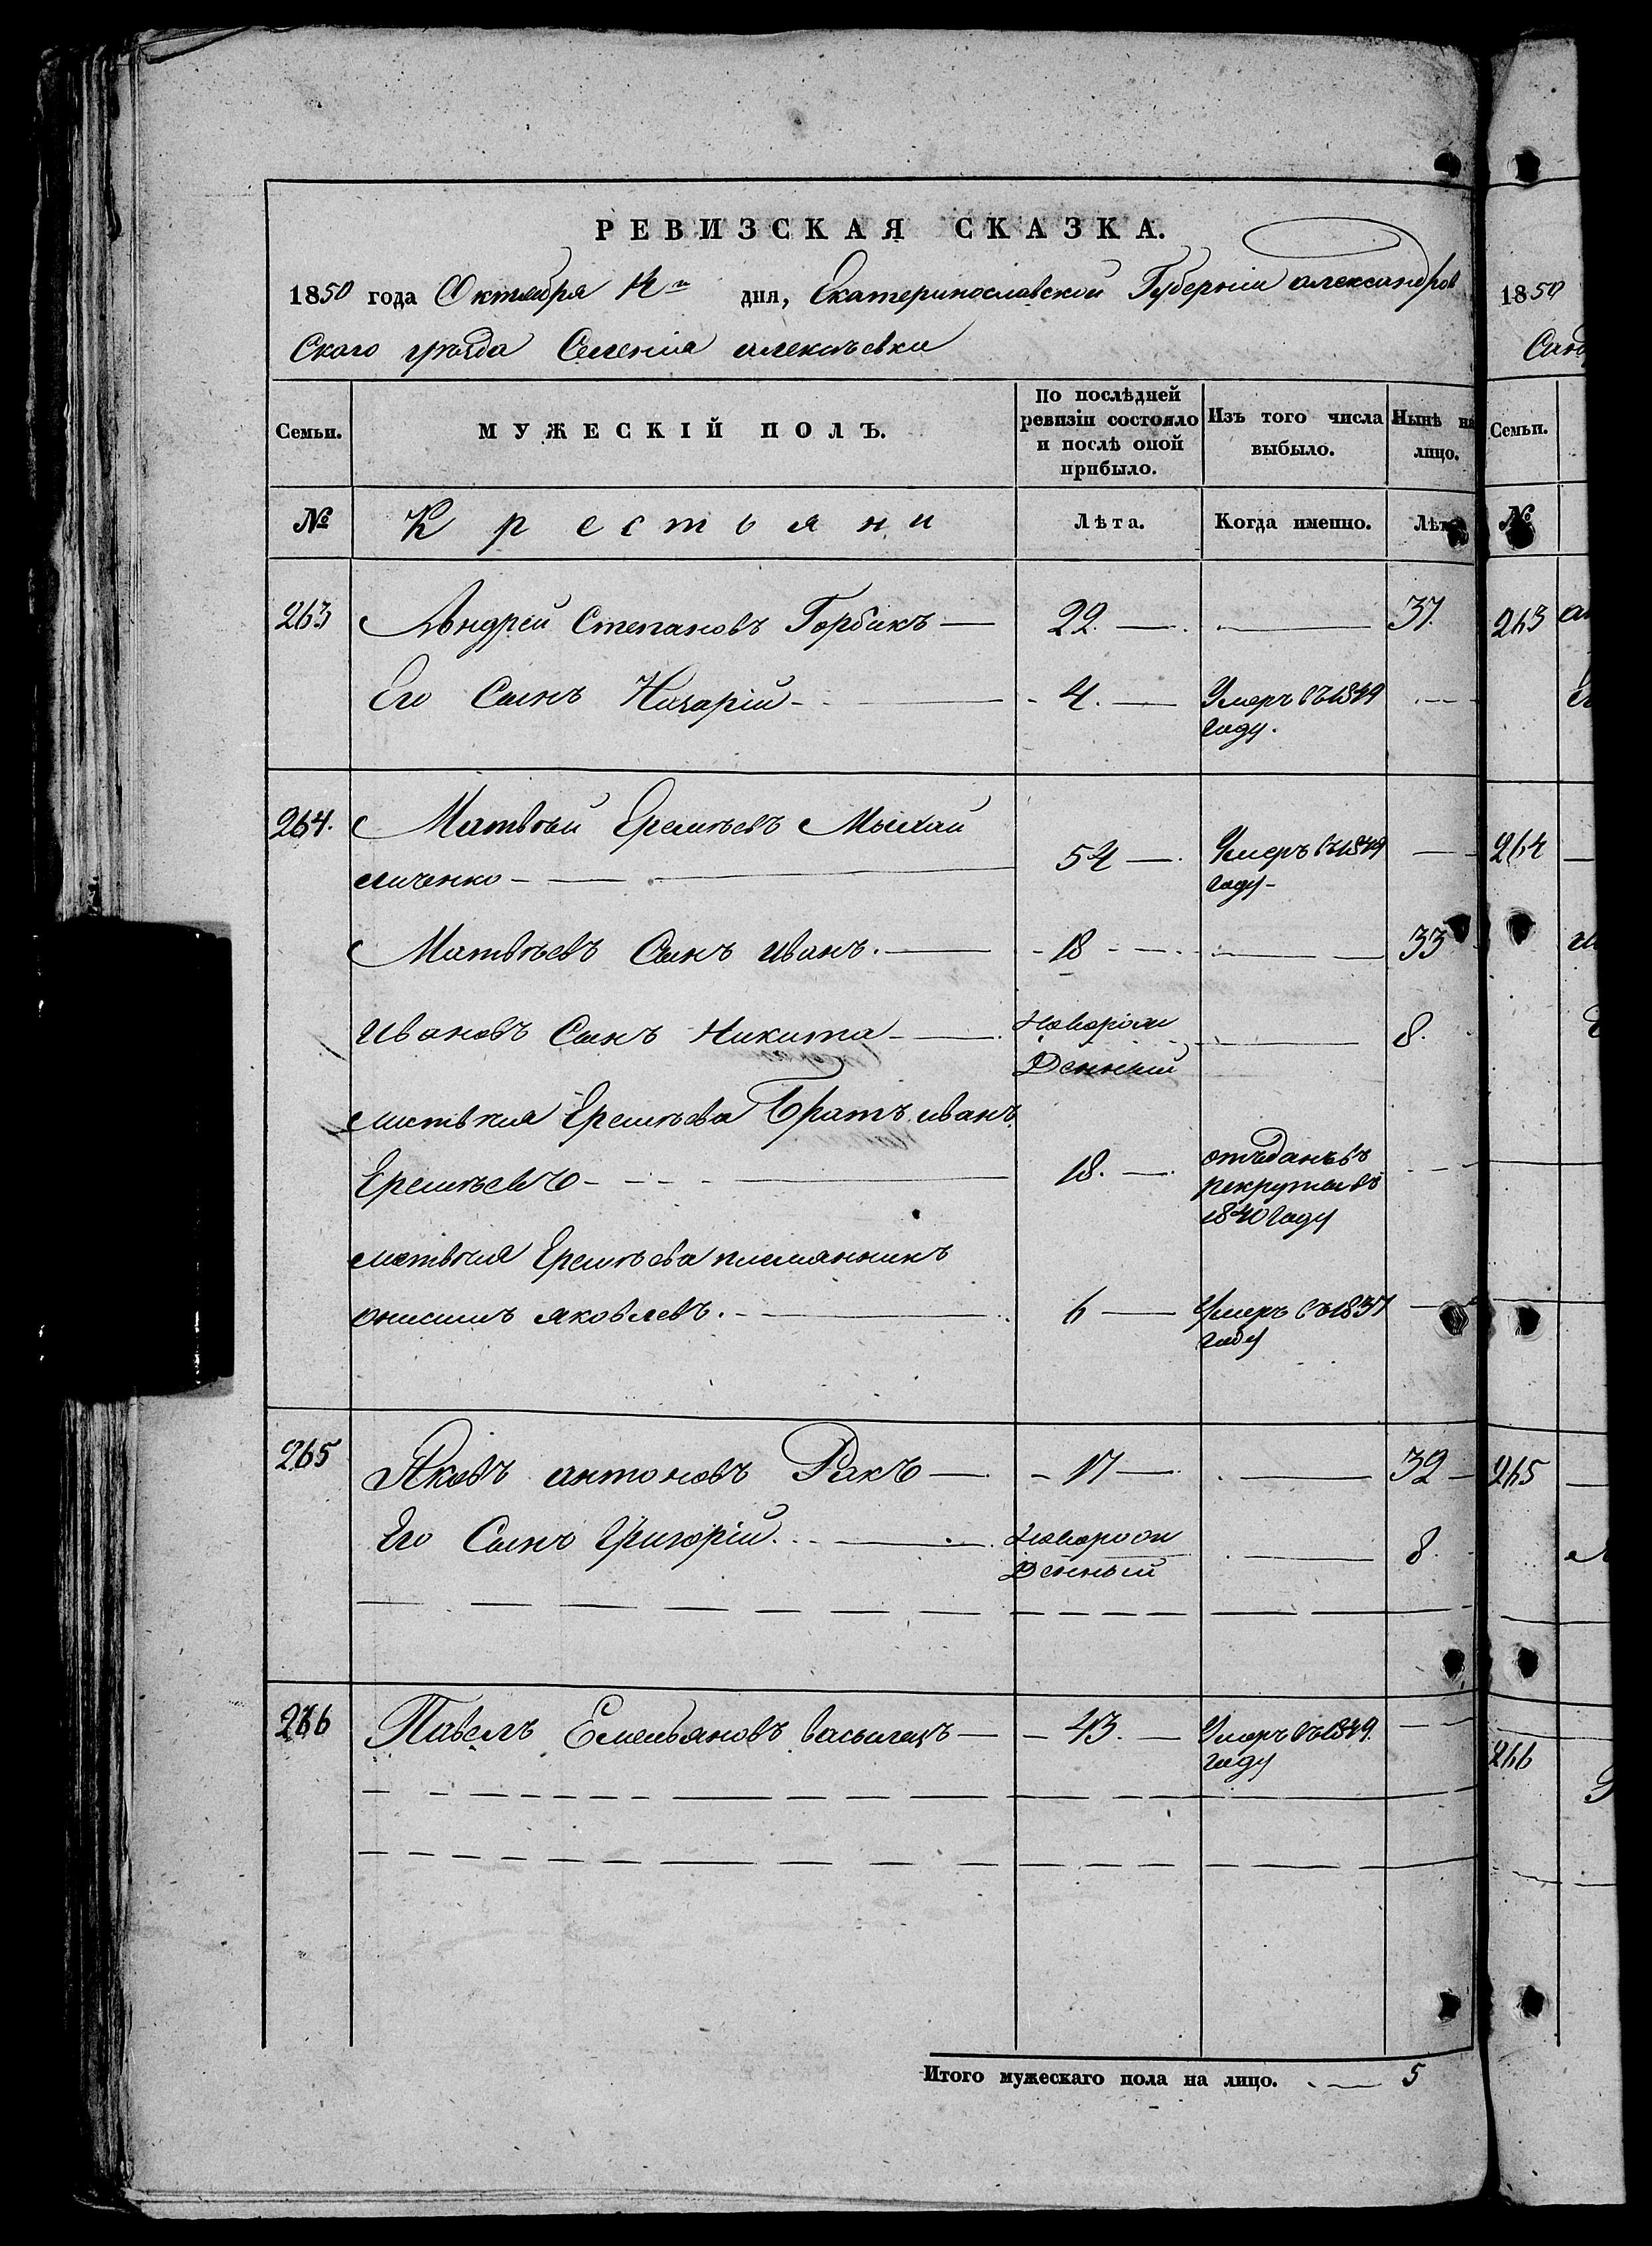 РЕВИЗСКАЯ СКАЗКА.
1850 года Октября дня, Екатеринославской Губерніи александров
Ского уѣзда Селенія алексѣевки
Семьи. МУЖЕСКІЙ ПОЛЪ. По послѣдней ревизіи состояло и послѣ оной прибыло. Изъ того числа выбыло. Нынѣ на лицо.
№ Крестьяни Лѣта. Когда именно. Лѣта
263 Андрей Степановъ Горбикъ — 22. — — 37.
Его Сынъ Назарій — 4. — Умеръ въ 1849
году.
264. Матвѣй Еремѣевъ Михай
личенко — 54 — Умеръ въ 1849
году —
Матвѣевъ Сынъ иванъ. — 18 — — 33
Ивановъ Сынъ Никита — Новорож
Денный — 8.
матвѣя Еремѣева Братъ иванъ
Еремѣевъ — 18. — отъданъ въ
рекруты въ
1840 году
матвѣя Еремѣева племянникъ
онисимъ яковлевъ. — 6 — Умеръ въ 1837
году
265 Яковъ антоновъ Ракъ — 17 — — 32
Его Сынъ Григорій. — Новорож
Денный — 8.
266 Павелъ Емельяновъ — 43. — Умеръ въ 1849.
году
Итого мужескаго пола на лицо. — 5
1850
Семьи.
№
263
264
265
266